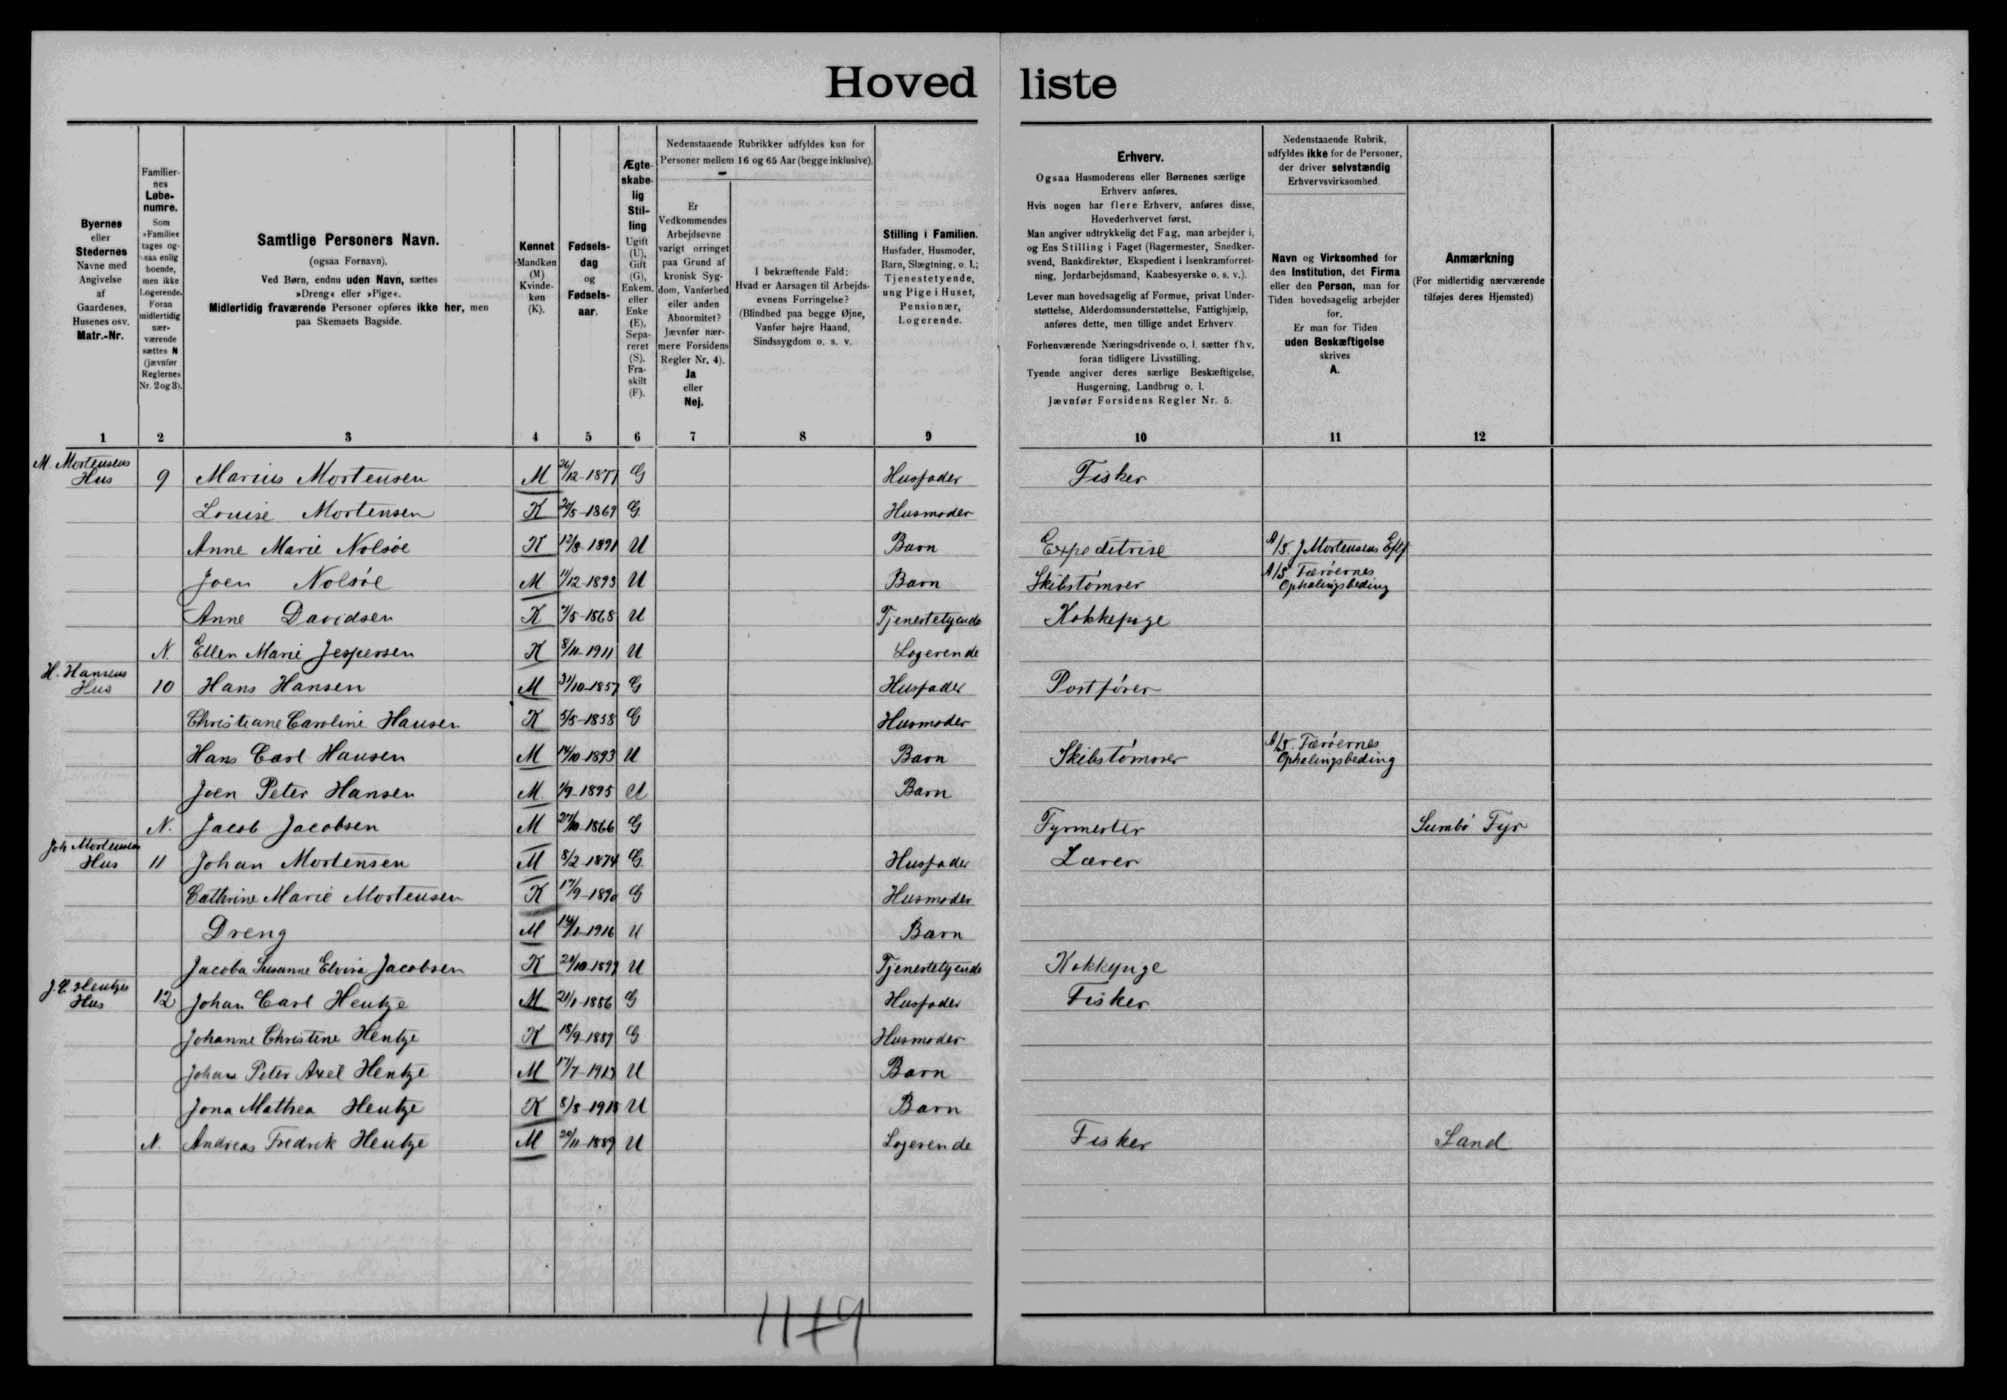 Hoved liste
Byernes
eller
Stedernes
Navne med
Angivelse
af
Gaardenes,
Husenes osv.
Matr.-Nr.
Familier-
nes
Løbe-
numre.
Som
»Familie«
tages og-
saa enlig
boende,
men ikke
Logerende.
Foran
midlertidig
nær-
værende
sættes N
(jævnfør
Reglernes
Nr. 2 og 3).
Samtlige Personers Navn.
(ogsaa Fornavn).
Ved Børn, endnu uden Navn, sættes
»Dreng« eller »Pige«.
Midlertidig fraværende Personer opføres ikke her, men
paa Skemaets Bagside.
Kønnet
Mandkøn
(M)
Kvinde-
køn
(K).
Fødsels-
dag
og
Fødsels-
aar.
Ægte-
skabe-
lig
Stil-
ling
Ugift
(U),
Gift
(G),
Enkem.
eller
Enke
(E),
Sepa-
reret
(S),
Fra-
skilt
(F).
Nedenstaaende Rubrikker udfyldes kun for
Personer mellem 16 og 65 Aar (begge inklusive).
Er
Vedkommendes
Arbejdsevne
varigt forringet
paa Grund af
kronisk Syg-
dom, Vanførhed
eller anden
Abnormitet?
Jævnfør nær-
mere Forsidens
Regler Nr. 4).
Ja
eller
Nej.
I bekræftende Fald:
Hvad er Aarsagen til Arbejds-
evnens Forringelse?
(Blindhed paa begge Øjne,
Vanfør højre Haand,
Sindssygdom o. s. v.
Stilling i Familien.
Husfader, Husmoder,
Barn, Slægtning, o. l.;
Tjenestetyende,
ung Pige i Huset,
Pensionær,
Logerende.
Erhverv.
Ogsaa Husmoderens eller Børnenes særlige
Erhverv anføres.
Hvis nogen har flere Erhverv, anføres disse,
Hovederhvervet først.
Man angiver udtrykkelig det Fag, man arbejder i,
og Ens Stilling i Faget (Bagermester, Snedker-
svend, Bankdirektør, Ekspedient i Isenkramforret-
ning, Jordarbejdsmand, Kaabesyerske o. s. v.).
Lever man hovedsagelig af Formue, privat Under-
støttelse, Alderdomsunderstøttelse, Fattighjælp,
anføres dette, men tillige andet Erhverv
Forhenværende Næringsdrivende o. l. sætter fhv.
foran tidligere Livsstilling.
Tyende angiver deres særlige Beskæftigelse,
Husgerning, Landbrug o. l.
Jævnfør Forsidens Regler Nr. 5.
Nedenstaaende Rubrik,
udfyldes ikke for de Personer,
der driver selvstændig
Erhvervsvirksomhed.
Navn og Virksomhed for
den Institution, det Firma
eller den Person, man for
Tiden hovedsagelig arbejder
for.
Er man for Tiden
uden Beskæftigelse
skrives
A.
Anmærkning
(For midlertidig nærværende
tilføjes deres Hjemsted)
1 2 3 4 5 6 7 8 9 10 11 12
M. Mortensens
Hus 9 Marius Mortensen M 26/12-1877 G Husfader Fisker
Louise Mortensen K 24/5-1869 G Husmoder
Anne Marie Nolsöe K 12/8-1891 U Barn Expeditrise A/S. J Mortensens Eftf
Joen Nolsöe M 11/12-1893 U Barn Skibstömrer A/S Færöernes
Ophalingsbeding
Anne Davidsen K 7/5-1868 U Tjenestetyende Kokkepige
N. Ellen Marie Jespersen K 8/11-1911 U Logerende
H. Hansens
Hus 10 Hans Hansen M 31/10-1857 G Husfader Postförer
Christiane Caroline Hansen K 5/5-1858 G Husmoder
Hans Carl Hansen M 14/10-1893 U Barn Skibstömrer A/S. Færöernes
Ophalingsbeding
Joen Peter Hansen M. 1/9-1895 U Barn
N. Jacob Jacobsen M 27/10-1866 G Fyrmester Sumbö Fyr
Joh Mortensens
Hus 11 Johan Mortensen M 8/2-1874 G Husfader Lærer
Cathrine Marie Mortensen K 17/9-1890 G Husmoder
Dreng M 14/1-1916 U Barn
Jacoba Susanne Elvira Jacobsen K 24/10-1899 U Tjenestetyende Kokkepige
J. C. Hentzes
Hus 12 Johan Carl Hentze M 21/1-1886 G Husfader Fisker
Johanne Christine Hentze K 18/9-1889 G Husmoder
Johan Peter Axel Hentze M 17/7-1913 U Barn
Jona Mathea Hentze K 8/8-1915 U Barn
N. Andreas Fredrik Hentze M 20/11-1889 U Logerende Fisker Sand
11+9